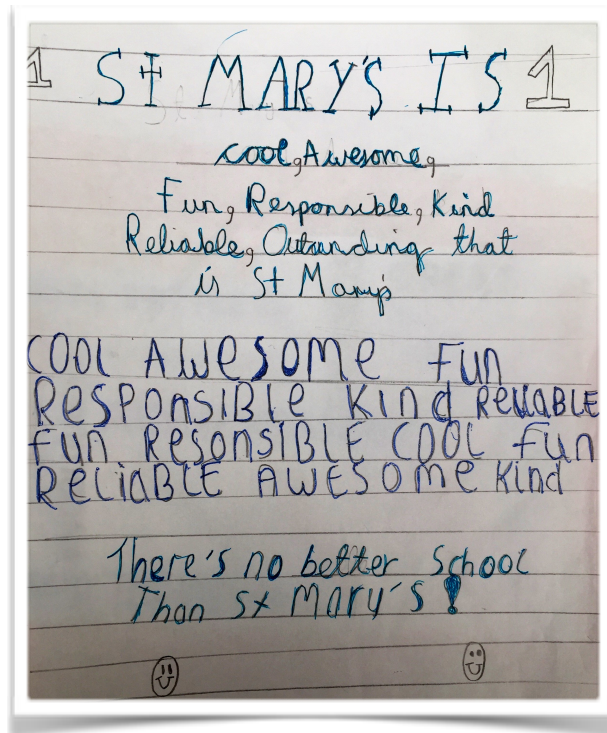 1 St MARY'S IS 1
cool, Awesome,
Fun, Responsible, Kind
Reliable, Outsanding that
is St Mary's
COOL AWESOME FUN
RESPONSIBLE KIND RELIABLE
FUN RESONSIBLE COOL FUN
RELIABLE AWESOME KIND
There's no better School
Than St Mary's!